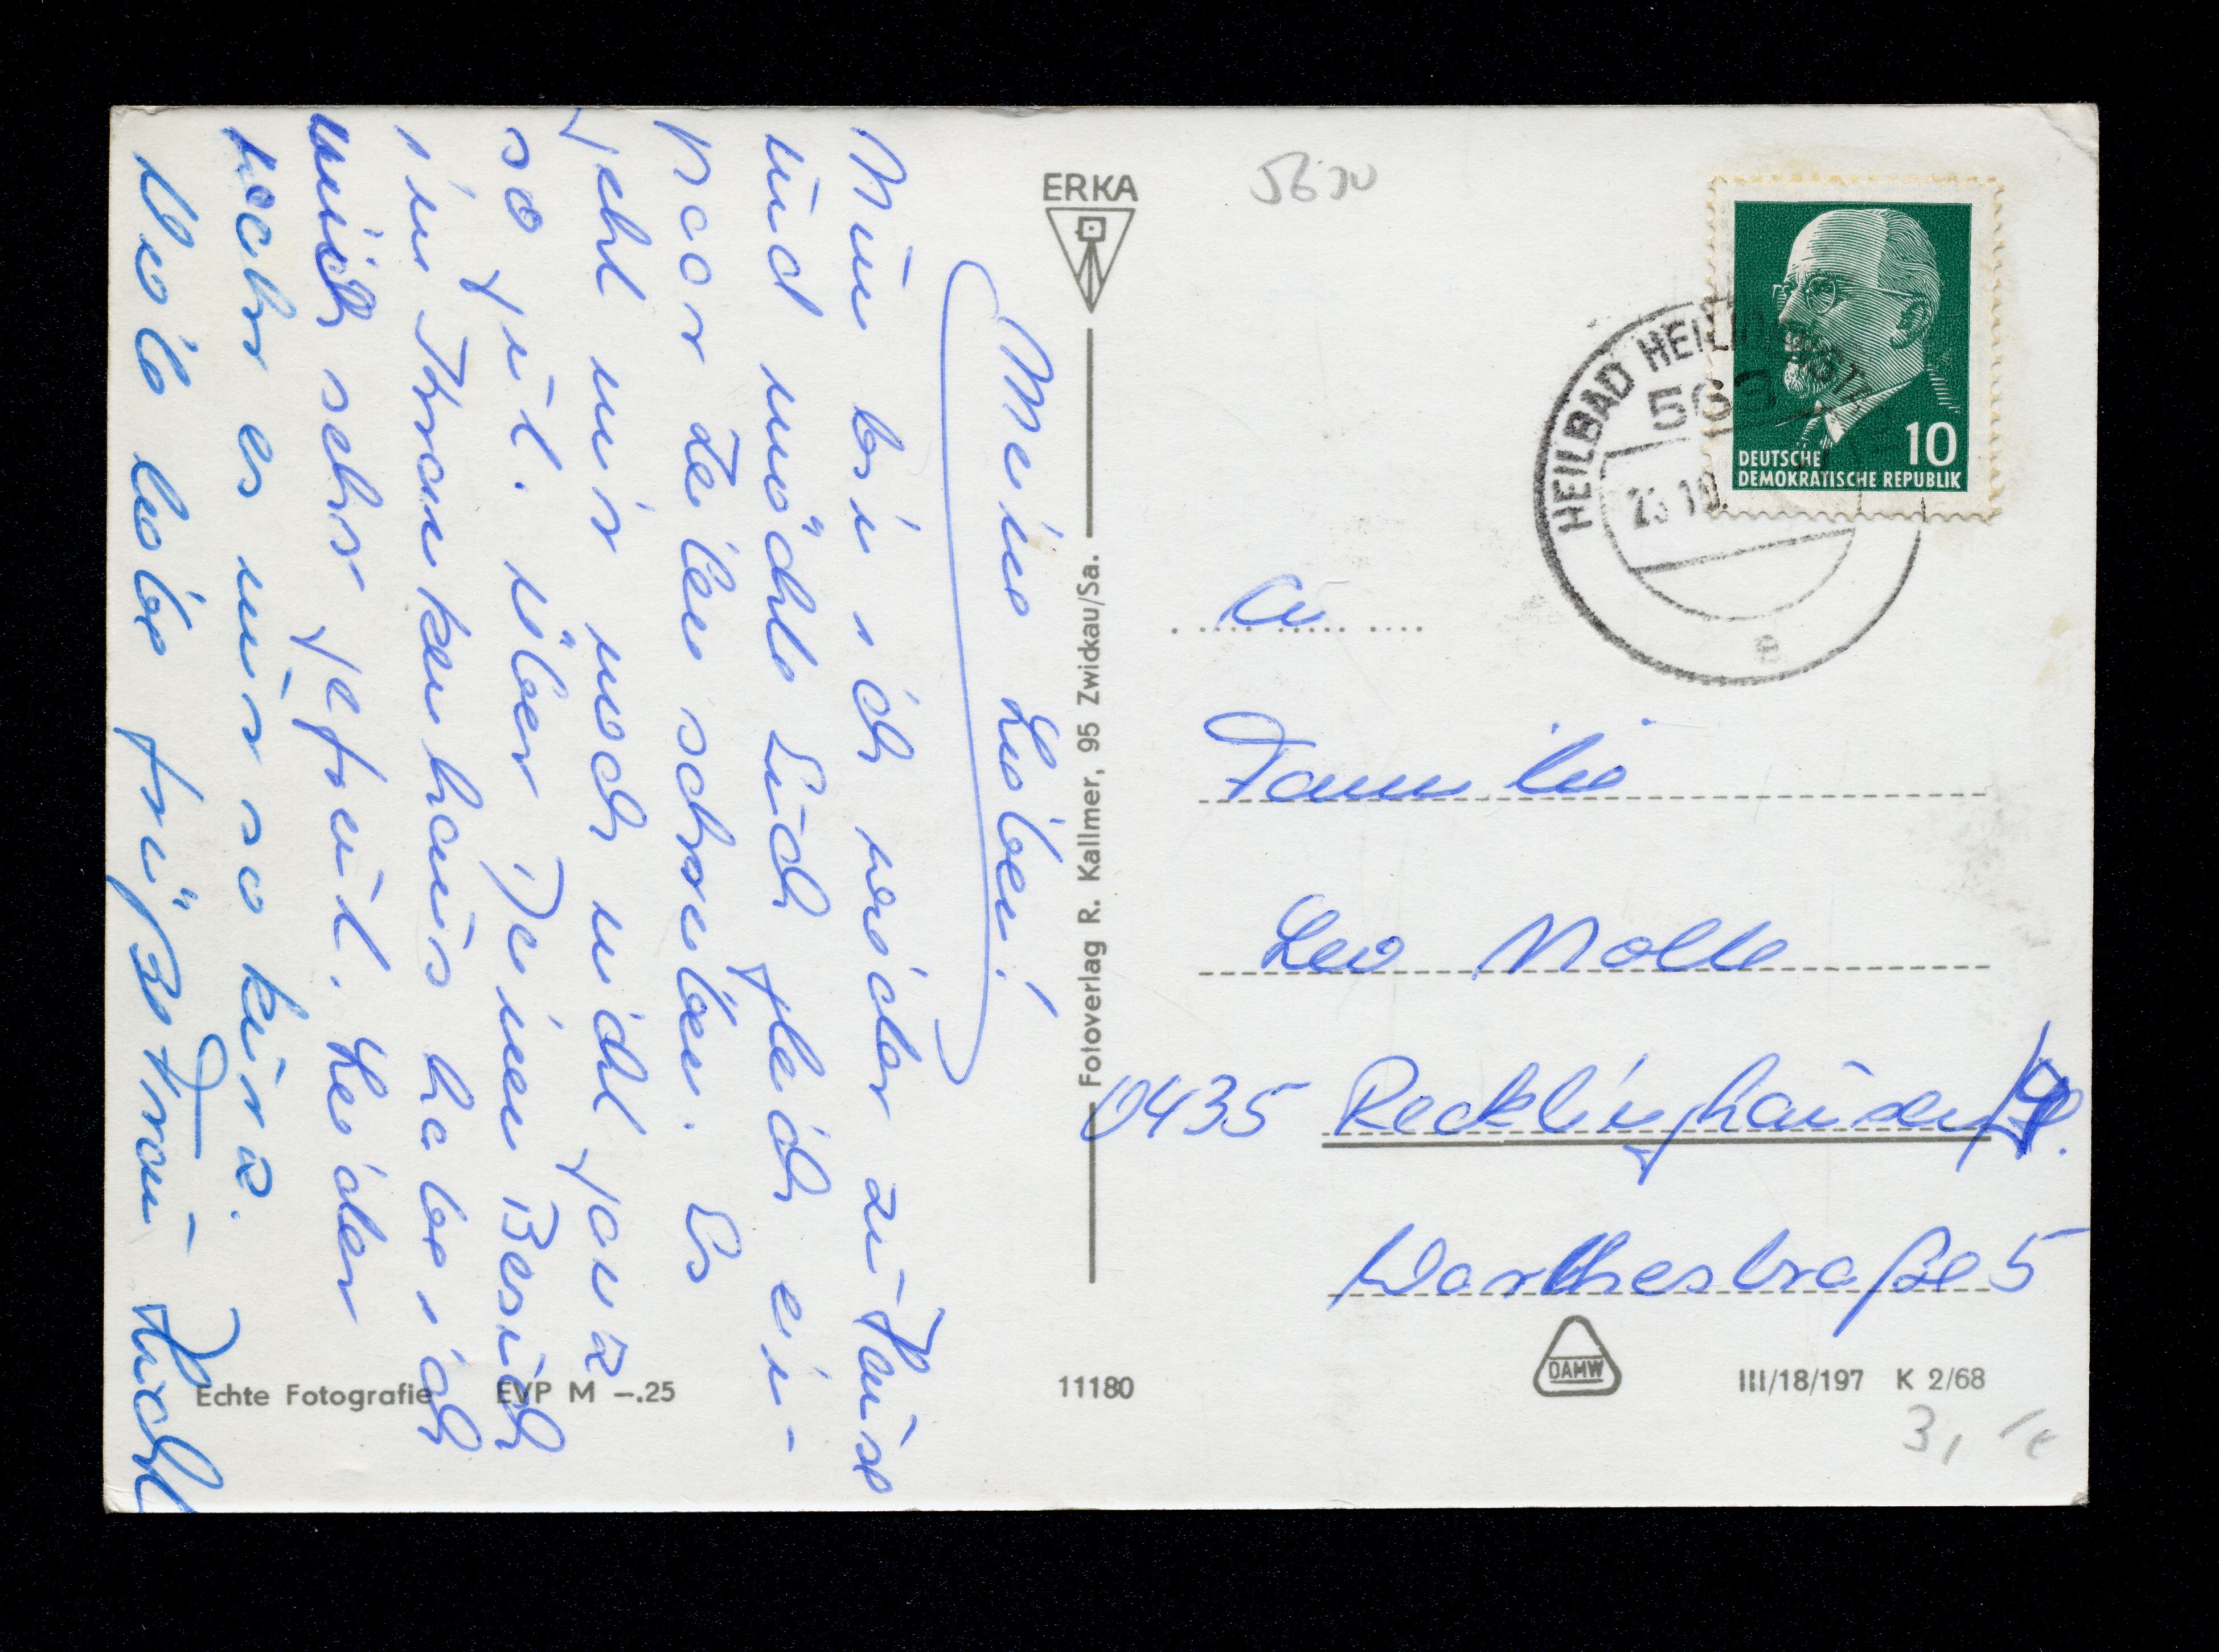 Meine Lieben!
Nun bin ich wieder zu Hause
und möchte Euch gleich ein
paar Zeilen schreiben. Es
geht mir noch nicht ganz
so gut. über Deinen Besuch
im Krankenhaus habe ich
mich sehr gefreut. Leider
war es nur so kurz.
Viele liebe Grüße Frau
ERKA
Fotoverlag R. Kallmer, 95 Zwickau/Sa.
HEILBAD HEILIGENSTADT
10
DEUTSCHE
DEMOKRATISCHE REPUBLIK
Familie
Leo Nolte
D435 Recklinghausen
Warthestraße 5
Echte Fotografie EVP M –.25
11180
DAMW
III/18/197 K 2/68